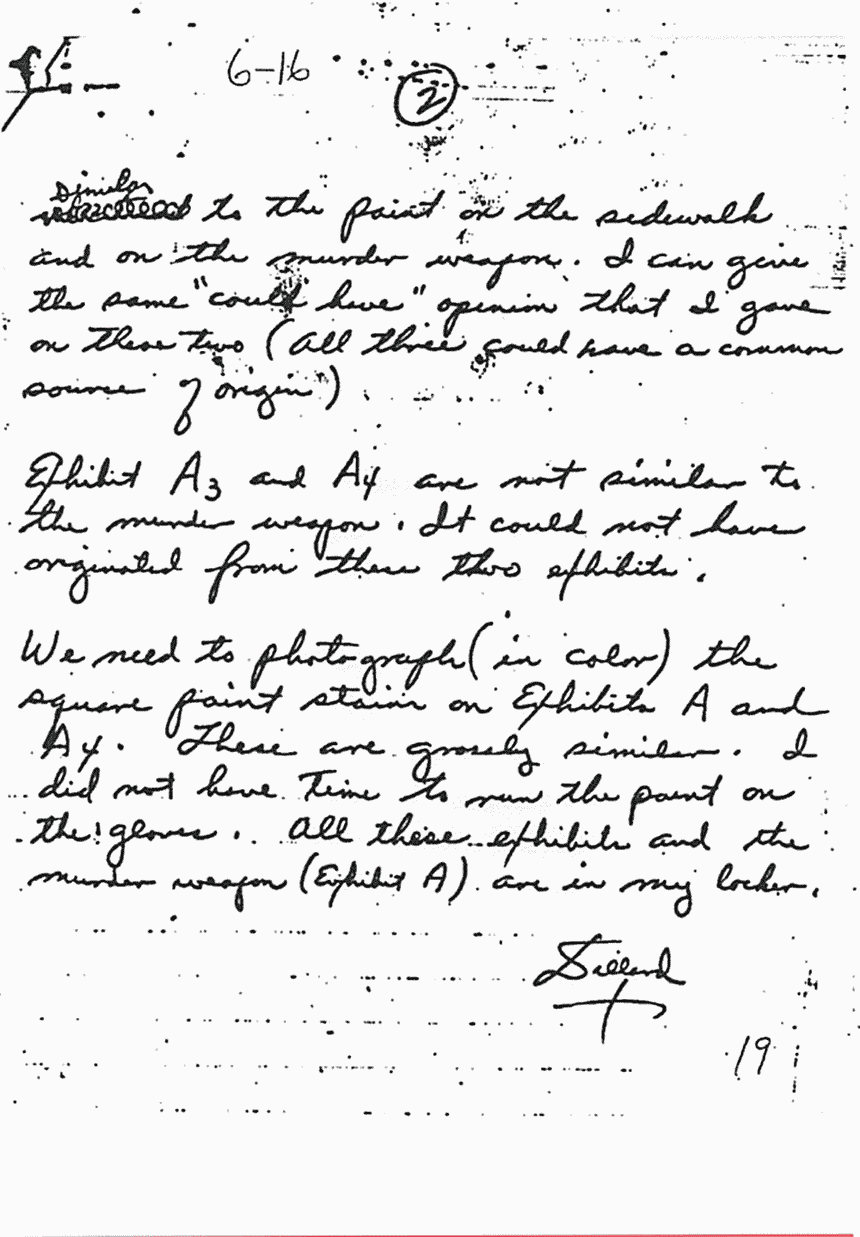 6-16
2
similar
to the paint on the sidewalk
and on the murder weapon. I can give
the same "could have" opinion that I gave
on these two (All three could have a common
source of origin)
Exhibit A3 and A4 are not similar to
the murder weapon. It could not have
originated from these two exhibits.
We need to photograph (in color) the
square paint stains on Exhibits A and
A4. These are grossly similar. I
did not have time to run the paint on
the gloves. All these exhibits and the
murder weapon (Exhibit A) are in my locker.
19